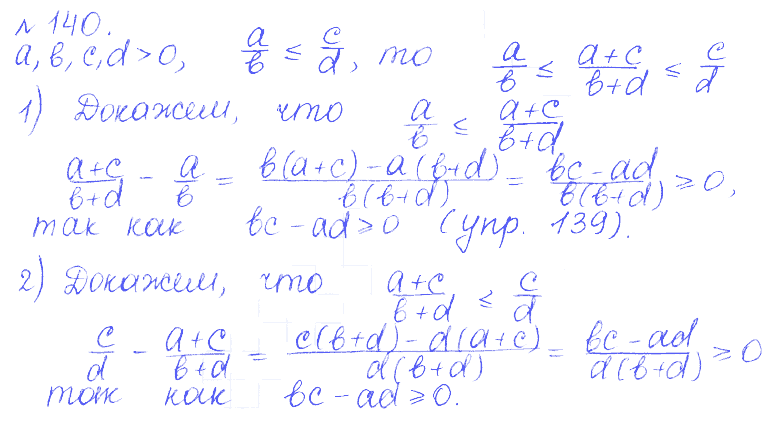 № 140.
a, b, c, d > 0, a/b ≤ c/d, то a/b ≤ (a+c)/(b+d) ≤ c/d
1) Докажем, что a/b ≤ (a+c)/(b+d)
(a+c)/(b+d) - a/b = (b(a+c) - a(b+d))/(b(b+d)) = (bc - ad)/(b(b+d)) ≥ 0,
так как bc - ad ≥ 0 (упр. 139).
2) Докажем, что (a+c)/(b+d) ≤ c/d
c/d - (a+c)/(b+d) = (c(b+d) - d(a+c))/(d(b+d)) = (bc - ad)/(d(b+d)) ≥ 0
так как bc - ad ≥ 0.